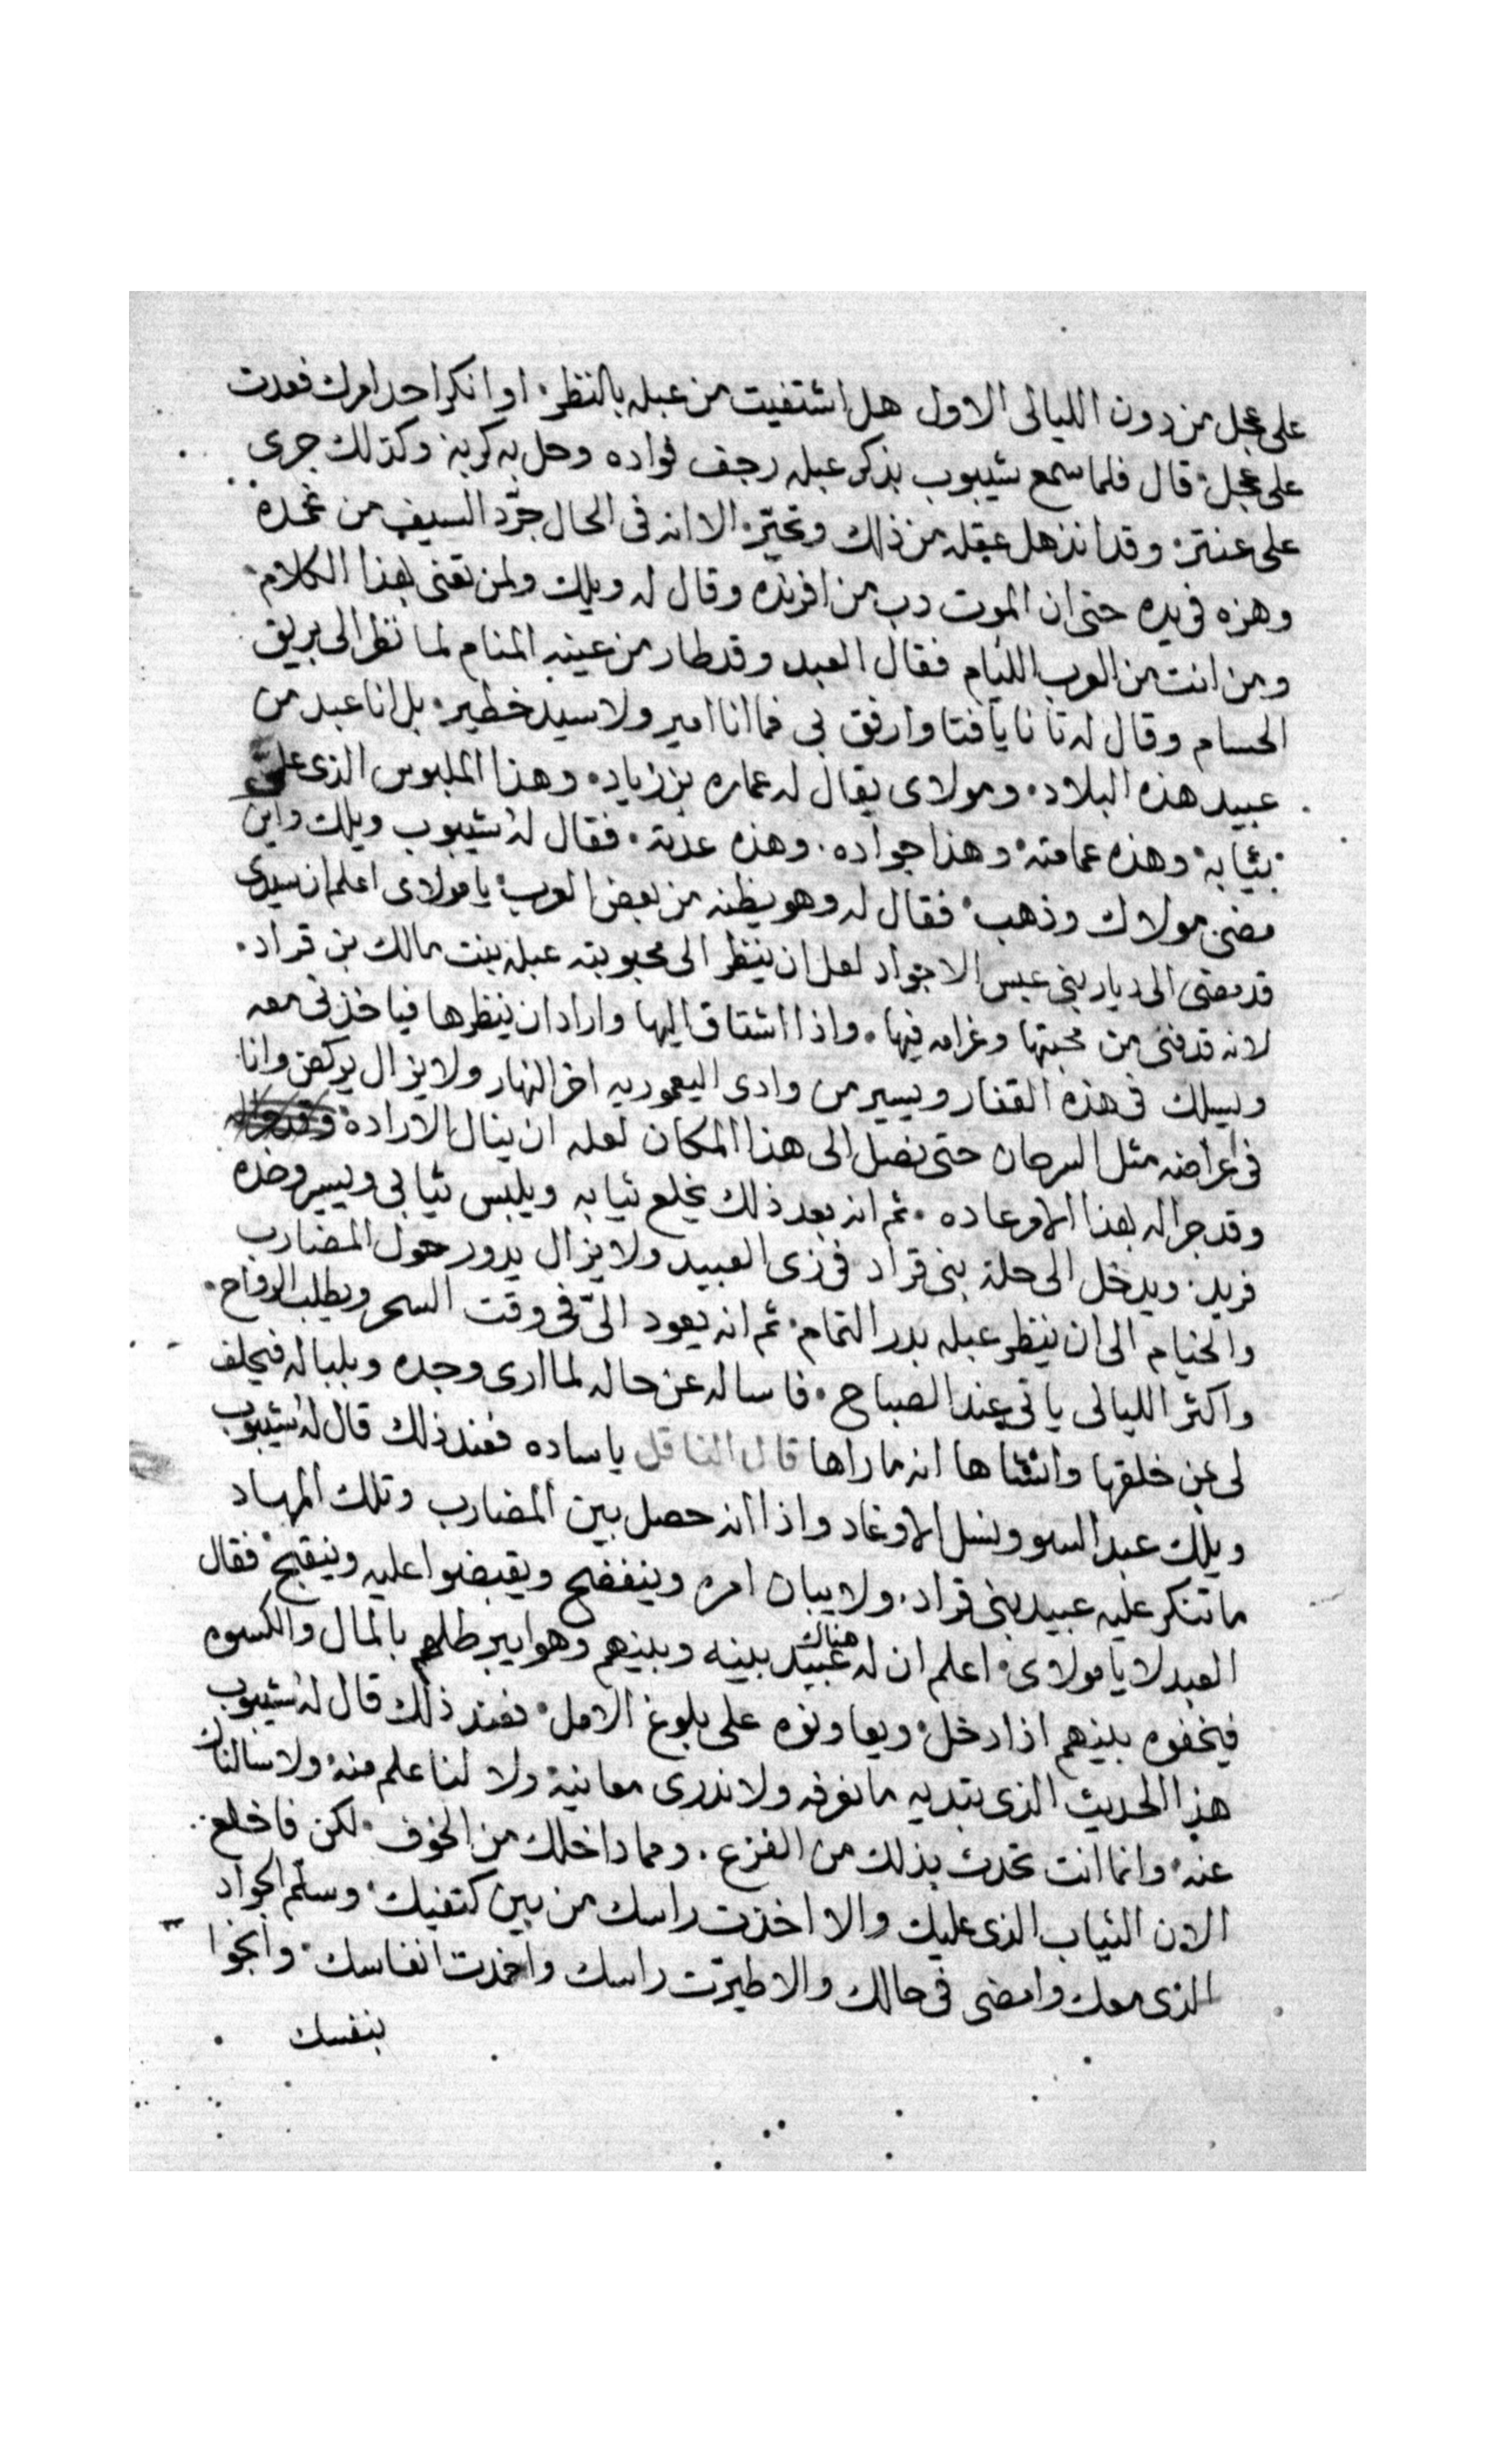 على عجل من دون الليالى الاول هل اشتفيت من عبله بالنظر، او انكر احد امرك فعدت
على عجل، قال فلما سمع شيبوب بذكر عبله رجف فواده وحل به كربه وكذلك جرى
على عنتر، وقد انذهل عقله من ذلك وتحيّر، الا انه فى الحال جرّد السيف من غمده
وهزه فى يده حتى ان الموت دب من افرنده وقال له ويلك ولمن تعنى بهذا الكلام،
ومن انت من العرب الليام فقال العبد وقد طار من عينيه المنام لما نظر الى بريق
الحسام وقال له تانا يا فتا وارفق بى فما انا امير ولا سيد خطير، بل انا عبد من
عبيد هذه البلاد، ومولاى يقال له عماره بن زياد، وهذا الملبوس الذى علىّ
ثيابه، وهذه عمامته، وهذا جواده، وهذه عدته، فقال لهُ شيبوب ويلك واين
مضى مولاك وذهب، فقال له وهو يظنه من بعض العرب، يا مولاى اعلم ان سيدى
قد مضى الى ديار بنى عبس الاجواد لعل ان ينظر الى محبوبته عبله بنت مالك بن قراد،
لانه قد فنى من محبتها وغرامه فيها، واذا اشتاق اليها واراد ان ينظرها فياخذنى معه
ويسلك فى هذه القفار ويسير من وادى اليعموريه اخر النهار ولا يزال يركض وانا
فى اعراضه مثل السرحان حتى نصل الى هذا المكان لعله ان ينال الاراده
وقد جرا له بهذا الامر عاده، ثم انه بعد ذلك يخلع ثيابه ويلبس ثيابى ويسير وحده
فريد، ويدخل الى حلة بنى قراد فى زى العبيد ولا يزال يدور حول المضارب
والخيام الى ان ينظر عبله بدر التمام، ثم انه يعود الىّ فى وقت السحر ويطلب الرواح،
واكثر الليالى ياتى عند الصباح، فاساله عن حاله لما ارى وجده وبلباله فيحلف
لى بمن خلقها وانشاها انه ما راها قال الناقل يا ساده فعند ذلك قال لهُ شيبوب
ويلك عبد السو ونسل الاوغاد واذا انه حصل بين المضارب وتلك المهاد
ما تنكر عليه عبيد بنى قراد، ولا يبان امره وينفضح ويقبضوا عليه وينقبح، فقال
العبد لا يا مولاى، اعلم ان له هناك عبيد بينه وبينهم وهو ايبرطلهم بالمال والكسوه
فيخفوه بينهم اذا دخل، ويعاونوه على بلوغ الامل، فعند ذلك قال لهُ شيبوب
هذا الحديث الذى تبديه ما نعرفه ولا ندرى معانيه، ولا لنا علم منه، ولا سالناك
عنه، وانما انت تحدث بذلك من الفزع، ومما داخلك من الخوف، لكن فاخلع
الان الثياب الذى عليك والا اخذت راسك من بين كتفيك، وسلّم الجواد
الذى معك وامضى فى حالك والا طيرت راسك واخمدت انفاسك، وانجوا
بنفسك